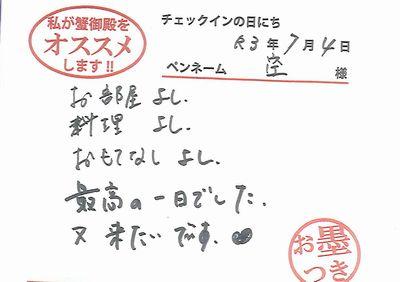 私が蟹御殿を
オススメ
します!!
チェックインの日にち
R3年7月4日
ペンネーム 空 様
お部屋 よし.
料理 よし.
おもてなし よし.
最高の一日でした.
又 来たいです.
お墨
つき